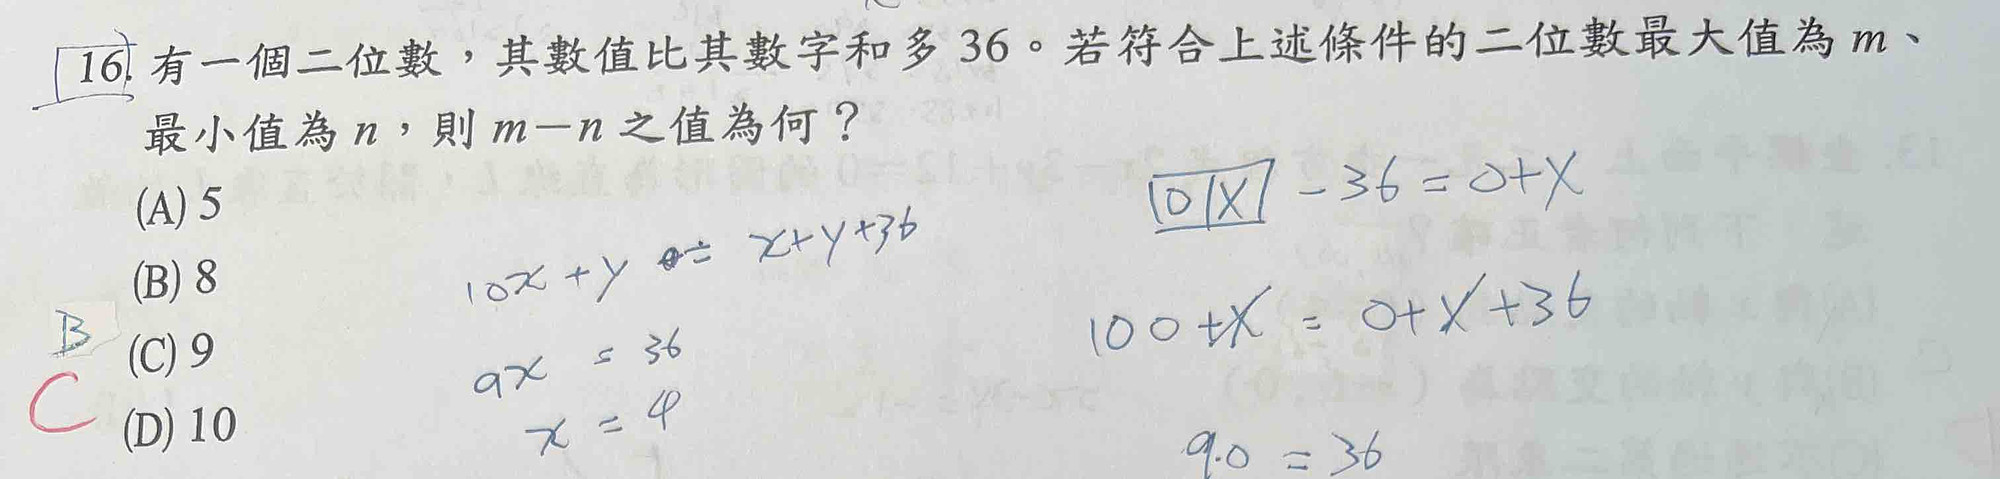 16. 有一個二位數，其數值比其數字和多 36。若符合上述條件的二位數最大值為 m、
最小值為 n，則 m－n 之值為何？
(A) 5
(B) 8
(C) 9
(D) 10
B
C
10x + y = x+y+36
9x = 36
x = 4
0 X - 36 = 0+X
100+X = 0+X+36
9.0 = 36